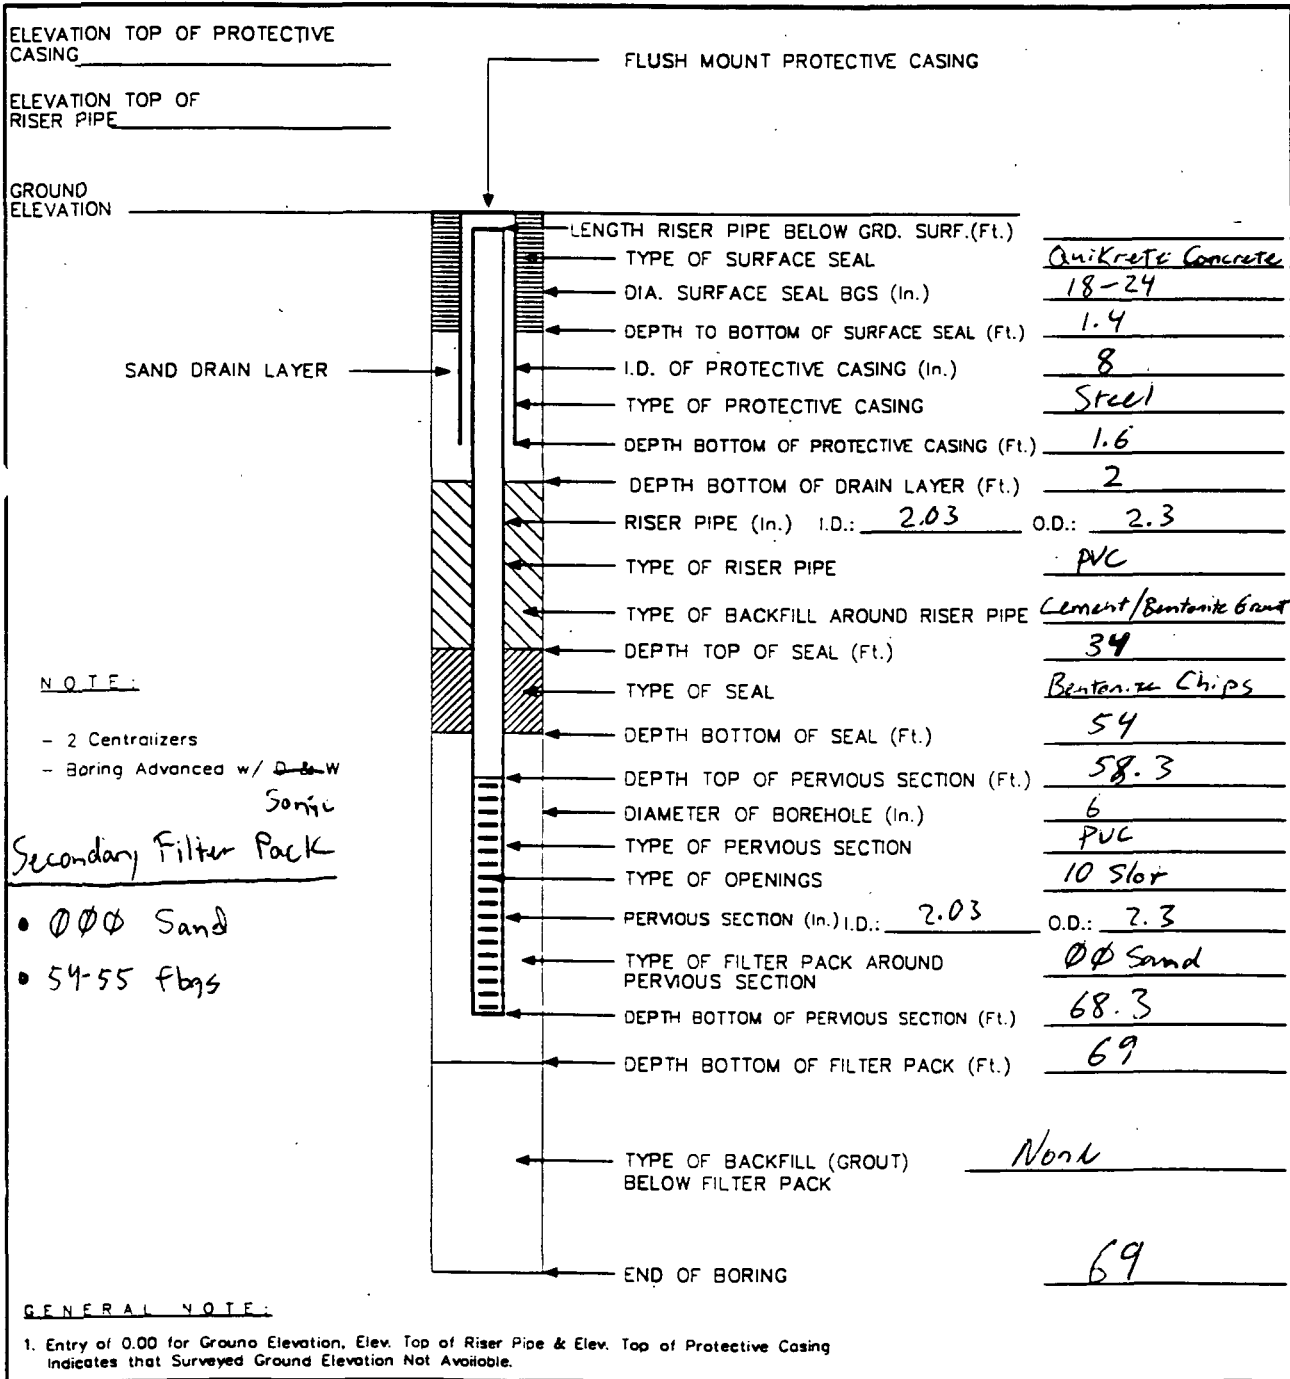 ELEVATION TOP OF PROTECTIVE
CASING
FLUSH MOUNT PROTECTIVE CASING
ELEVATION TOP OF
RISER PIPE
GROUND
ELEVATION
LENGTH RISER PIPE BELOW GRD. SURF.(Ft.)
TYPE OF SURFACE SEAL QuiKrete Concrete
DIA. SURFACE SEAL BGS (In.) 18-24
DEPTH TO BOTTOM OF SURFACE SEAL (Ft.) 1.4
SAND DRAIN LAYER
I.D. OF PROTECTIVE CASING (In.) 8
TYPE OF PROTECTIVE CASING Steel
DEPTH BOTTOM OF PROTECTIVE CASING (Ft.) 1.6
DEPTH BOTTOM OF DRAIN LAYER (Ft.) 2
RISER PIPE (In.) I.D.: 2.03 O.D.: 2.3
TYPE OF RISER PIPE PVC
TYPE OF BACKFILL AROUND RISER PIPE Cement/Bentonite Grout
DEPTH TOP OF SEAL (Ft.) 34
TYPE OF SEAL Bentonite Chips
DEPTH BOTTOM OF SEAL (Ft.) 54
DEPTH TOP OF PERVIOUS SECTION (Ft.) 58.3
DIAMETER OF BOREHOLE (In.) 6
TYPE OF PERVIOUS SECTION PVC
TYPE OF OPENINGS 10 Slot
PERVIOUS SECTION (In.) I.D.: 2.03 O.D.: 2.3
TYPE OF FILTER PACK AROUND
PERVIOUS SECTION 00 Sand
DEPTH BOTTOM OF PERVIOUS SECTION (Ft.) 68.3
DEPTH BOTTOM OF FILTER PACK (Ft.) 69
TYPE OF BACKFILL (GROUT)
BELOW FILTER PACK None
END OF BORING 69
NOTE:
- 2 Centralizers
- Boring Advanced w/ D & W
Sonic
Secondary Filter Pack
• 000 Sand
• 54-55 fbgs
GENERAL NOTE:
1. Entry of 0.00 for Ground Elevation, Elev. Top of Riser Pipe & Elev. Top of Protective Casing
Indicates that Surveyed Ground Elevation Not Available.